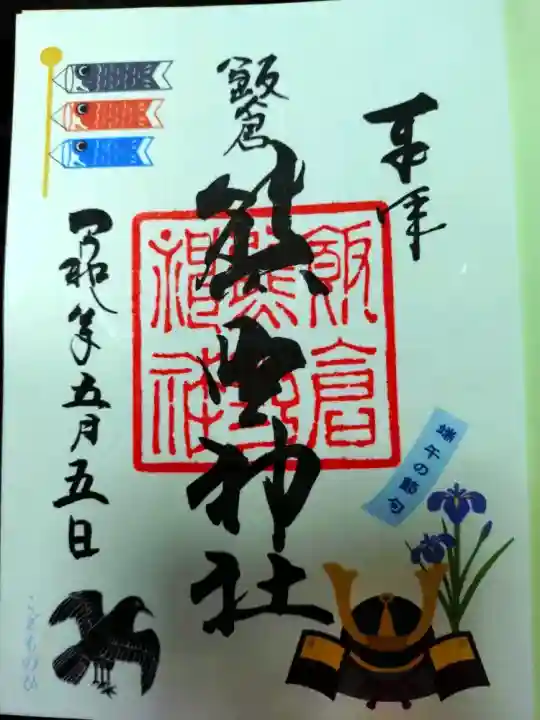 奉拝
飯倉
熊野神社
飯倉
熊野
神社
端午の節句
令和元年五月五日
こどもの日